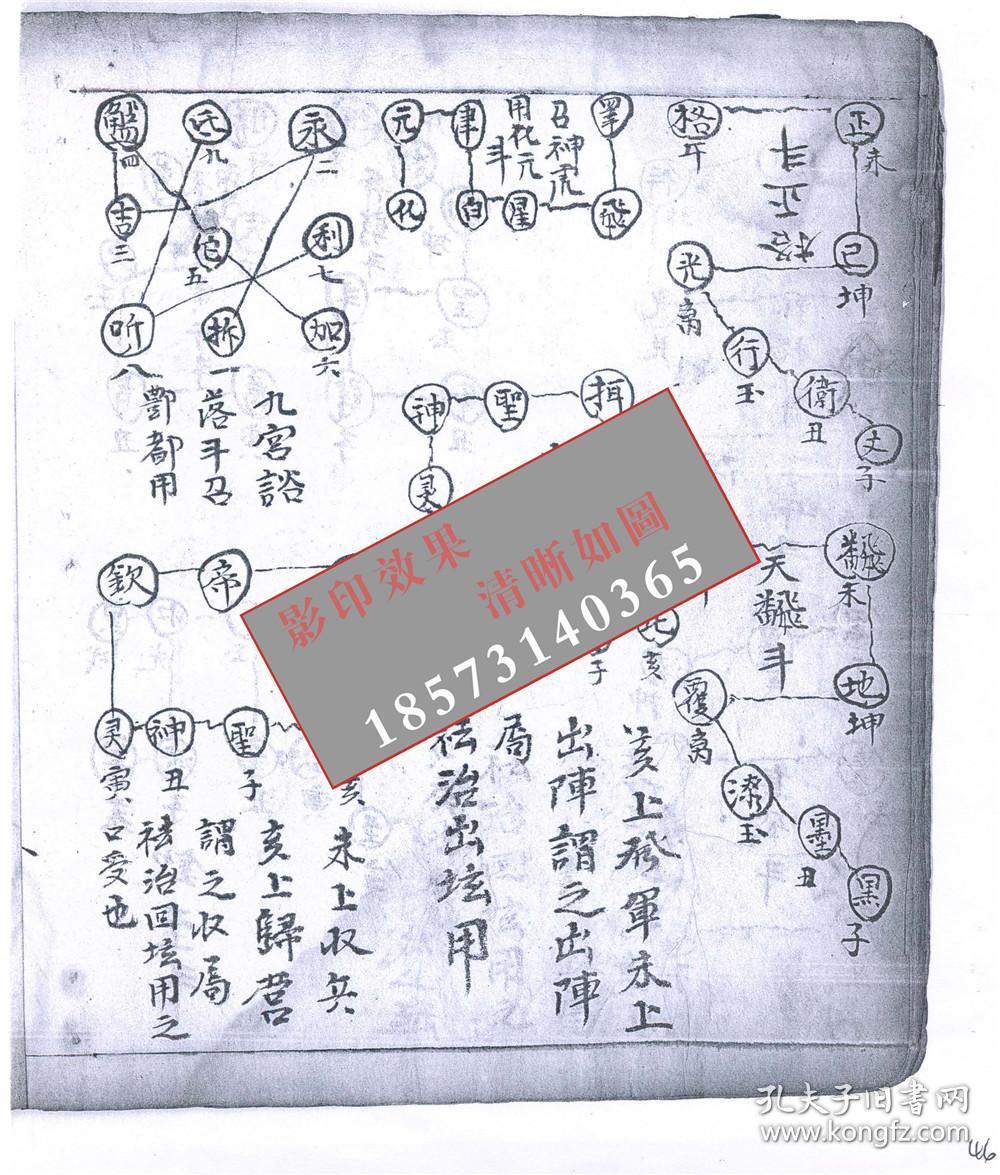 正
未
格
午
格正斗
己
坤
光
离
行
玉
衛
丑
丈
子
未
天
斗
地
坤
覆
离
玉
墨
丑
黒
子
飛
召神虎
用化元
斗
星
白
聿
元
化
永
二
九
四
吉
三
五
利
七
听
八
拆
一
加
六
九宮諮
落斗召
酆都用
神
聖
灵
欽
帝
灵
寅
神
丑
聖
子
亥
子
亥
亥上發軍未上
出陣謂之出陣
局
祛治出坛用
未上收兵
亥上歸营
謂之收局
祛治回坛用之
口受也
影印效果
清晰如圖
18573140365
孔夫子旧书网
www.kongfz.com
46